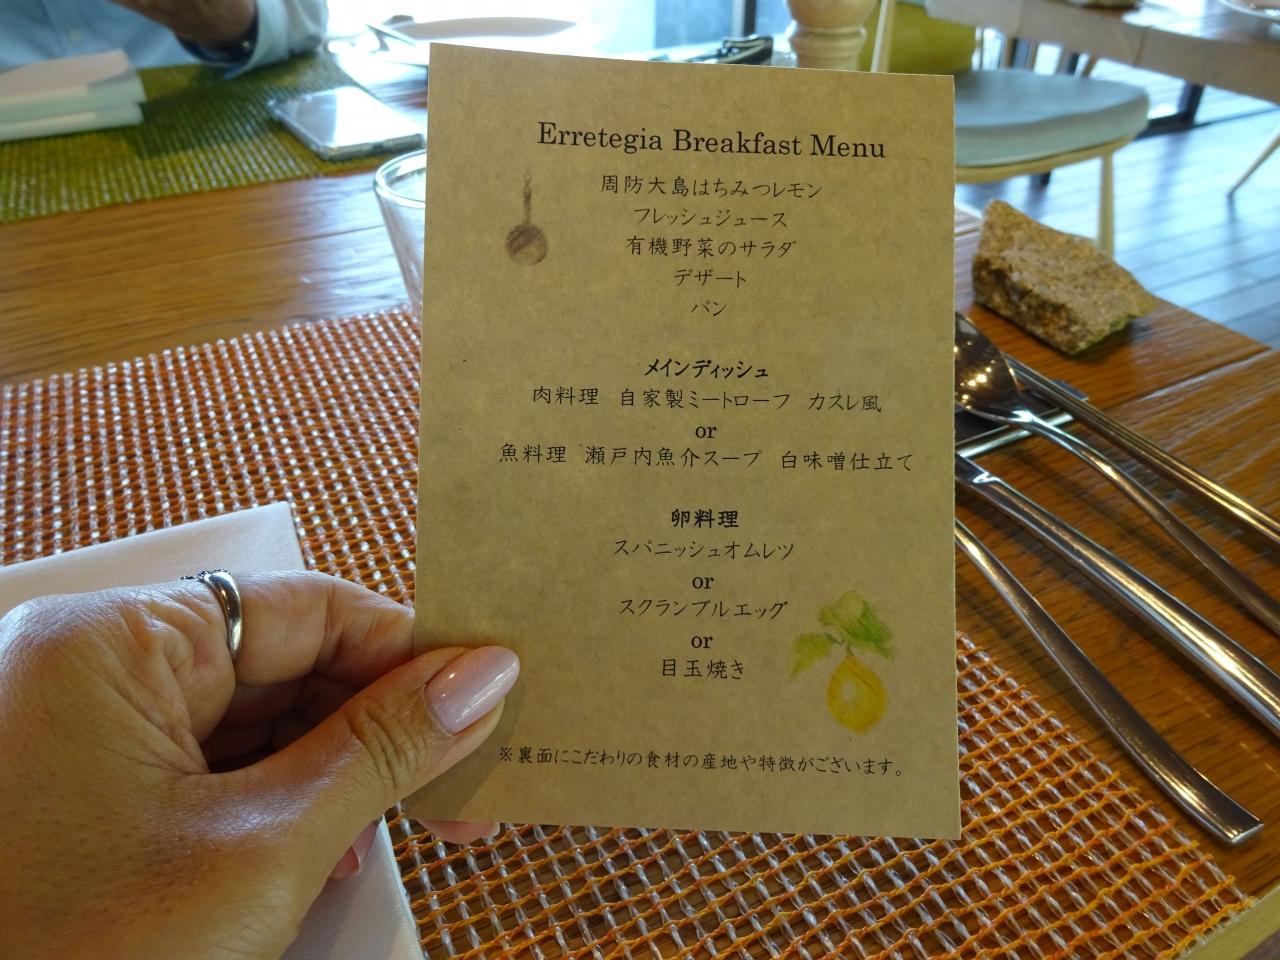 Erretegia Breakfast Menu
周防大島はちみつレモン
フレッシュジュース
有機野菜のサラダ
デザート
パン
メインディッシュ
肉料理　自家製ミートローフ　カスレ風
or
魚料理　瀬戸内魚介スープ　白味噌仕立て
卵料理
スパニッシュオムレツ
or
スクランブルエッグ
or
目玉焼き
※裏面にこだわりの食材の産地や特徴がございます。